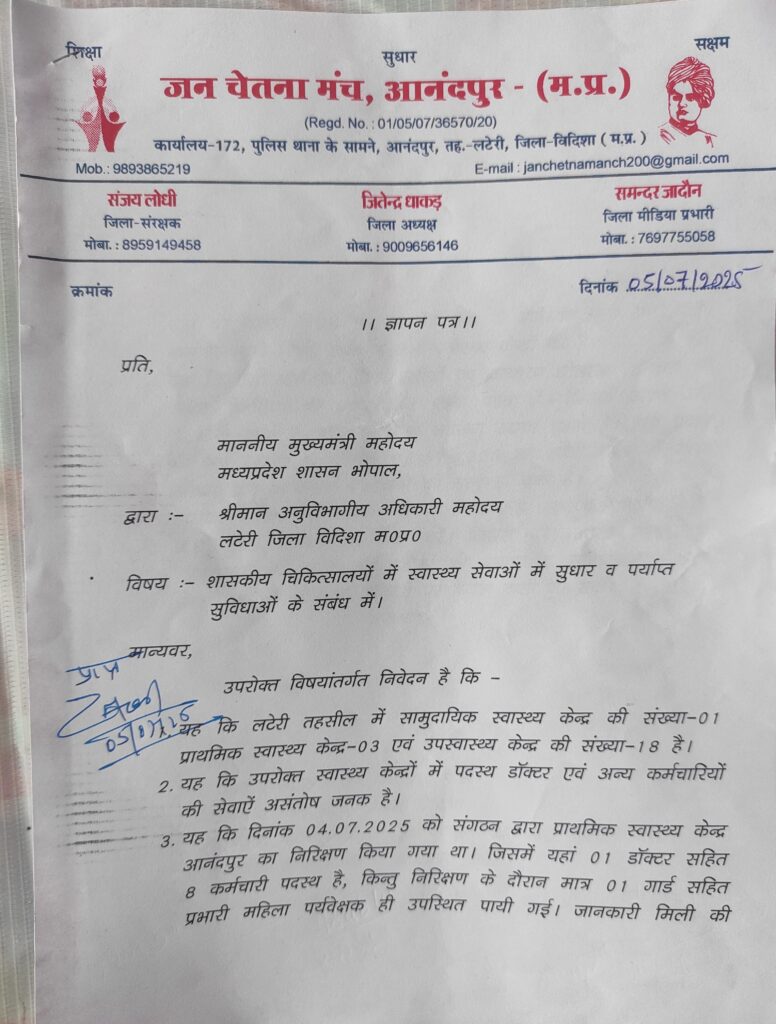 शिक्षा
सुधार
सक्षम
जन चेतना मंच, आनंदपुर - (म.प्र.)
(Regd. No. : 01/05/07/36570/20)
कार्यालय-172, पुलिस थाना के सामने, आनंदपुर, तह.-लटेरी, जिला-विदिशा ( म.प्र. )
Mob.: 9893865219
E-mail : janchetnamanch200@gmail.com
संजय लोधी
जिला-संरक्षक
मोबा. : 8959149458
जितेन्द्र धाकड़
जिला अध्यक्ष
मोबा. : 9009656146
समन्दर जादौन
जिला मीडिया प्रभारी
मोबा. : 7697755058
क्रमांक
दिनांक 05/07/2025
।। ज्ञापन पत्र।।
प्रति,
माननीय मुख्यमंत्री महोदय
मध्यप्रदेश शासन भोपाल,
द्वारा :- श्रीमान अनुविभागीय अधिकारी महोदय
लटेरी जिला विदिशा म0प्र0
विषय :- शासकीय चिकित्सालयों में स्वास्थ्य सेवाओं में सुधार व पर्याप्त
सुविधाओं के संबंध में।
मान्यवर,
प्राप्त
05/07/25
उपरोक्त विषयांतर्गत निवेदन है कि -
यह कि लटेरी तहसील में सामुदायिक स्वास्थ्य केन्द्र की संख्या-01
प्राथमिक स्वास्थ्य केन्द्र-03 एवं उपस्वास्थ्य केन्द्र की संख्या-18 है।
2. यह कि उपरोक्त स्वास्थ्य केन्द्रों में पदस्थ डॉक्टर एवं अन्य कर्मचारियों
की सेवाऐं असंतोष जनक है।
3. यह कि दिनांक 04.07.2025 को संगठन द्वारा प्राथमिक स्वास्थ्य केन्द्र
आनंदपुर का निरिक्षण किया गया था। जिसमें यहां 01 डॉक्टर सहित
8 कर्मचारी पदस्थ है, किन्तु निरिक्षण के दौरान मात्र 01 गार्ड सहित
प्रभारी महिला पर्यवेक्षक ही उपस्थित पायी गई। जानकारी मिली की